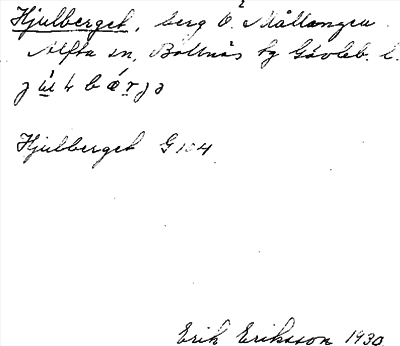 Hjulberget, berg Ö. Mållången
Alfta sn, Bollnäs hg Gävleb. l.
Hjulberget G 104
Erik Eriksson 1930